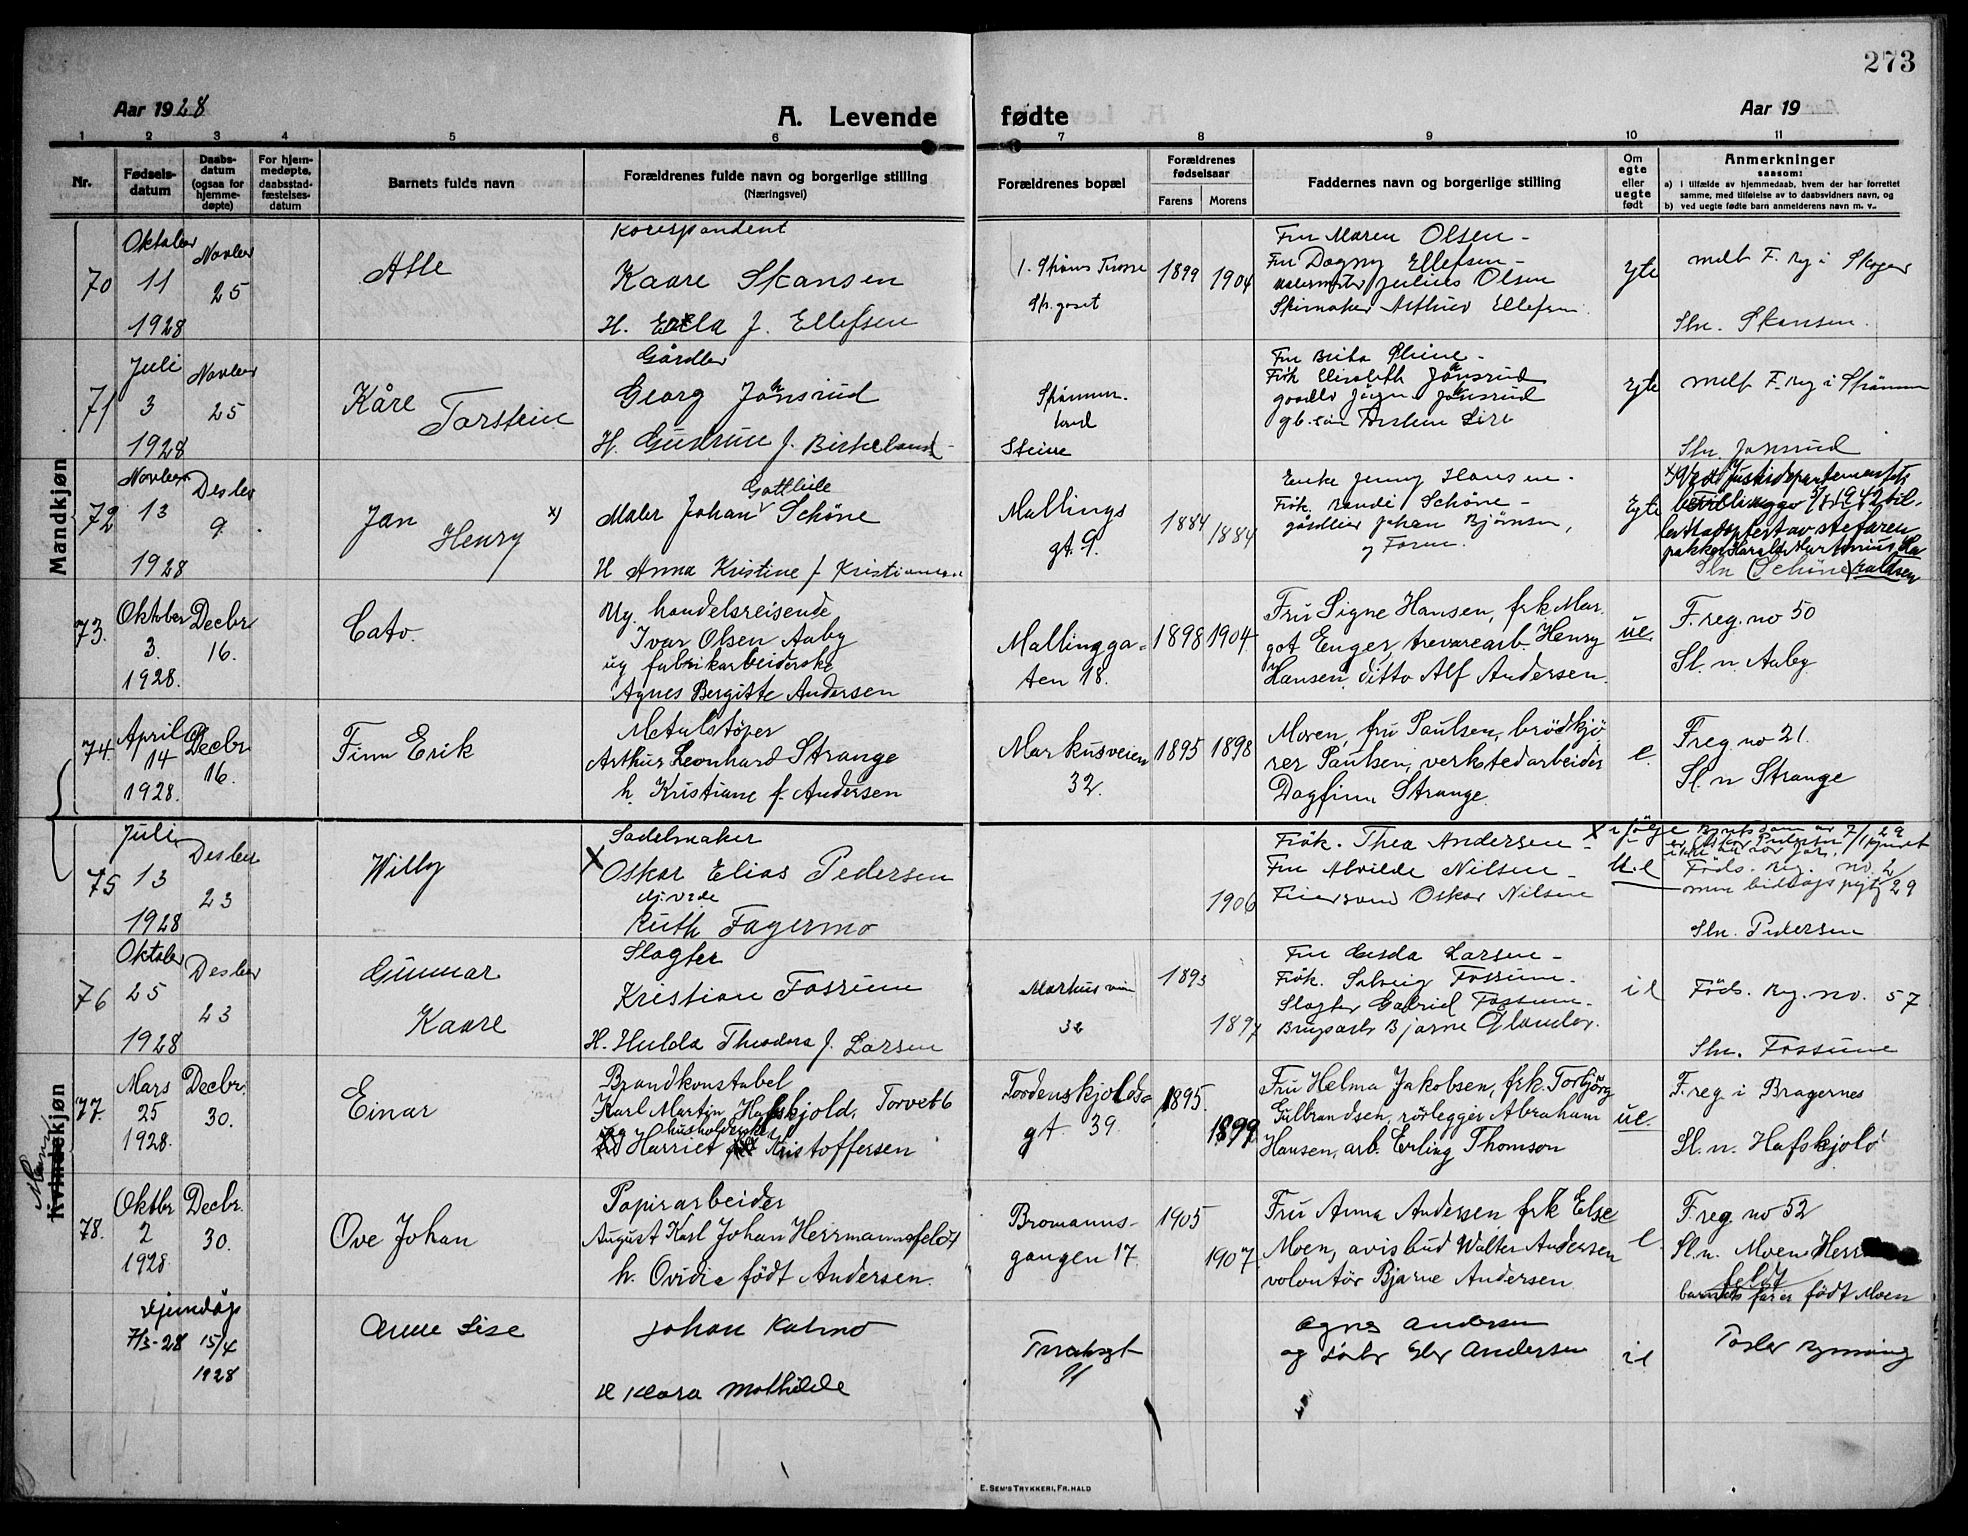 273
Aar 1928
A. Levende
fødte
Aar 19
1 2 3 4 5 6 7 8 9 10 11
Nr.
Fødsels-
datum
Daabs-
datum
(ogsaa for
hjemme-
døpte)
For hjem-
medøpte,
daabsstad-
fæstelses-
datum
Barnets fulde navn
Forældrenes fulde navn og borgerlige stilling
(Næringsvei)
Forældrenes bopæl
Forældrenes
fødselsaar
Farens Morens
Faddernes navn og borgerlige stilling
Om
egte
eller
uegte
født
Anmerkninger
saasom:
a) i tilfælde av hjemmedaab, hvem der har forrettet
samme, med tilføielse av to daabsvidners navn, og
b) ved uegte fødte barn anmelderens navn m. v..
Mandkjøn
70
Oktober
11
1928
Novber
25
Atle
Korespondent
Kaare Skansen
H. Erla f. Ellefsen
1899
1904
Fru Maren Olsen -
Fru Dagny Ellefsen -
malermester Julius Olsen
Skimaker Arthur Ellefsen
egte
melt F. reg i Skoger
Sln. Skansen.
71
Juli
3
1928
Novber
25
Kåre
Torstein
Gårdbr
Georg Jonsrud
H. Gudrun f. Birkeland
Strømm.
land
Steine
Frøk Elisabeth Jonsrud
egte
melt F. reg i Strømm
Sln Jonsrud
72
Novber
13
1928
Desber
9.
Jan
Henry
x)
Gottlieb
Maler Johan Schöne
H Anna Kristine f Kristiansen
Mallings
gt. 9.
1884
1884
Enke Jenny Hansen -
Frøk. Randi Schöne -
gårdeier Johan Bjørnsen,
og Faren.
Egte
x) Ved Justisdepartementets
bevilling av 1942 til-
latt adoptert av stefaren
pakker Harald Martinius Ha
Sln (Schöne) raldsen
73.
Oktober
3.
1928.
Decbr
16.
Cato.
Ug. handelsreisende
Ivar Olsen Aaby
ug fabrikarbeiderske
Agnes Bergitte Andersen
Mallingga=
ten 18.
1898 1904
Fru Signe Hansen, frk Mar.
got Enger, trevarearb. Henry
Hansen, ditto Alf Andersen.
ue.
F. reg. no 50
Sl. n Aaby.
74.
April
14
1928.
Decbr
16.
Finn Erik
Metalstøper
Arthur Leonhard Strange
h. Kristiane f. Andersen
Markusveien
32.
1895 1898
Moren, fru Paulsen, brødkjø
rer Paulsen, verkstedarbeider
Dagfinn Strange.
e.
F reg. no 21.
Sl. n Strange
Mankjøn
75
Juli
13
1928
Desber
23
Willy
Sadelmaker
X Oskar Elias Pedersen
Ruth Fagermo
1906
Frøk. Thea Andersen -
Fru Alvilde Nilsen -
Feiersvend Oskar Nilsen
U. e
X ifølge
Føds. reg. no. 2
Sln. Pedersen
76
Oktober
25
1928
Desber
23
Gunnar
Kaare
Slagter
Kristian Fossum
H. Hulda Theodora f. Larsen
Markusvein
32
1893
1897
Fru Gerda Larsen -
Frøk. Solveig Fossum -
Slagter Gabriel Fossum -
Brugsarb Bjarne Glander.
Føds. reg. no. 57
Sln. Fossum
77.
Mars
25
1928.
Decbr.
30.
Einar
Brandkonstabel
Karl Martin Hafskjold, Torvet 6
husholderske
Harriet Kristoffersen
Tordenskjolds=
gt. 39.
1895.
1899
Fru Helma Jakobsen, frk. Torbjørg
Gulbrandsen, rørlegger Abraham
Hansen, arb. Erling Thomson
ue.
F. reg. i Bragernes
Sl. n. Hafskjold
78.
Oktbr
2
1928.
Decbr.
30.
Ove Johan
Papirarbeider
August Karl Johan Herrmannsfeldt
h. Ovidia født Andersen.
Bromanns-
gangen 17.
1905
1907.
Fru Anna Andersen, frk Else
Moen, avisbud Walter Andersen
volontør Bjarne Andersen
e.
F. reg. no 52
Sl. n. Moen Herr
feldt
barnets far er født Moen
Hjemdøpt
7/3-28 15/4
1928
Anne Lise
Johan Kalmo
H Klara Mathilde
Agnes Andersen
E. SEM'S TRYKKERI, FR.HALD